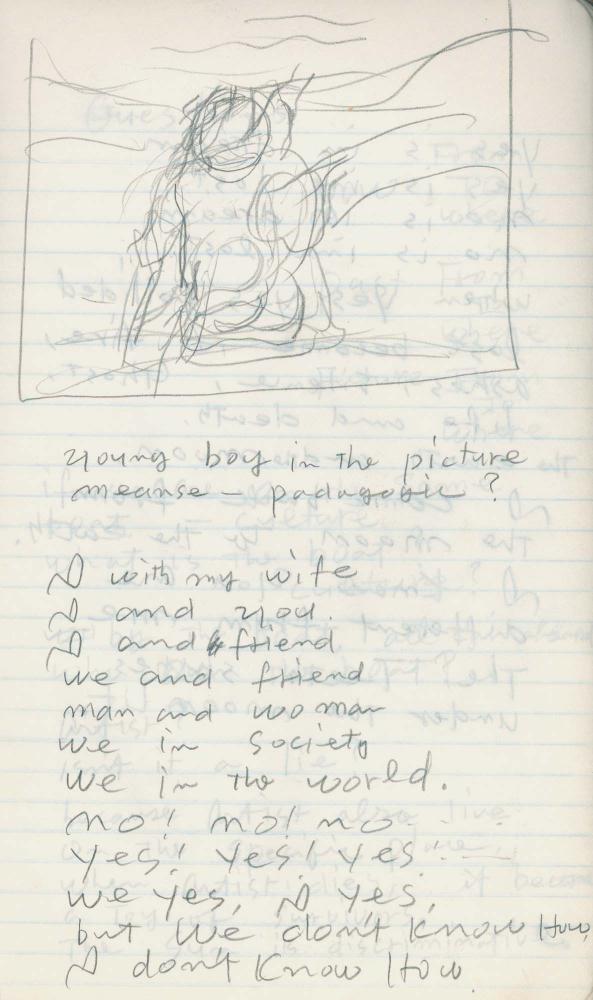 young boy in the picture
meanse – padagogic ?
I with my wife
I and you.
I and friend
we and friend
man and woman
we in society
we in the world.
no! no! no
yes! yes! yes
we yes, I yes,
but we don't know How,
I don't know How.